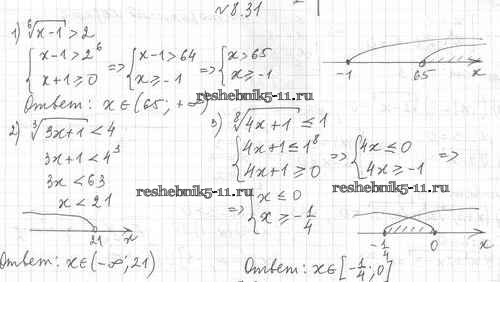 №8.31
1) ⁶√(x-1) > 2
{ x-1 > 2⁶
x+1 ≥ 0 => { x-1 > 64
x ≥ -1 => { x > 65
x ≥ -1
-1 65 x
Ответ: x∈(65; +∞)
reshebnik5-11.ru
2) ³√(3x+1) < 4
3x+1 < 4³
3x < 63
x < 21
21 x
Ответ: x∈(-∞; 21)
3) ⁸√(4x+1) ≤ 1
{ 4x+1 ≤ 1⁸
4x+1 ≥ 0 => { 4x ≤ 0
4x ≥ -1 =>
reshebnik5-11.ru reshebnik5-11.ru
=> { x ≤ 0
x ≥ -1/4
-1/4 0 x
Ответ: x∈[-1/4; 0]